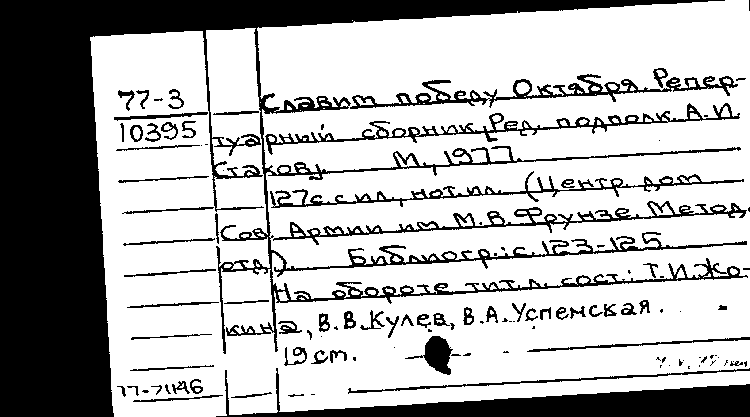 77-3
10395
Славим победу Октября. Репер-
туарный сборник. [Ред. подполк. А.И.
Стаков]. М., 1977.
127с. с ил., нот. ил. (Центр. дом
Сов. Армии им. М.В. Фрунзе. Метод.
отд.). Библиогр.: с. 123-125.
На обороте тит. л. сост.: Т.И. Жо-
кина, В.В. Кулев, В.А. Успенская.
19 см.
77-71146